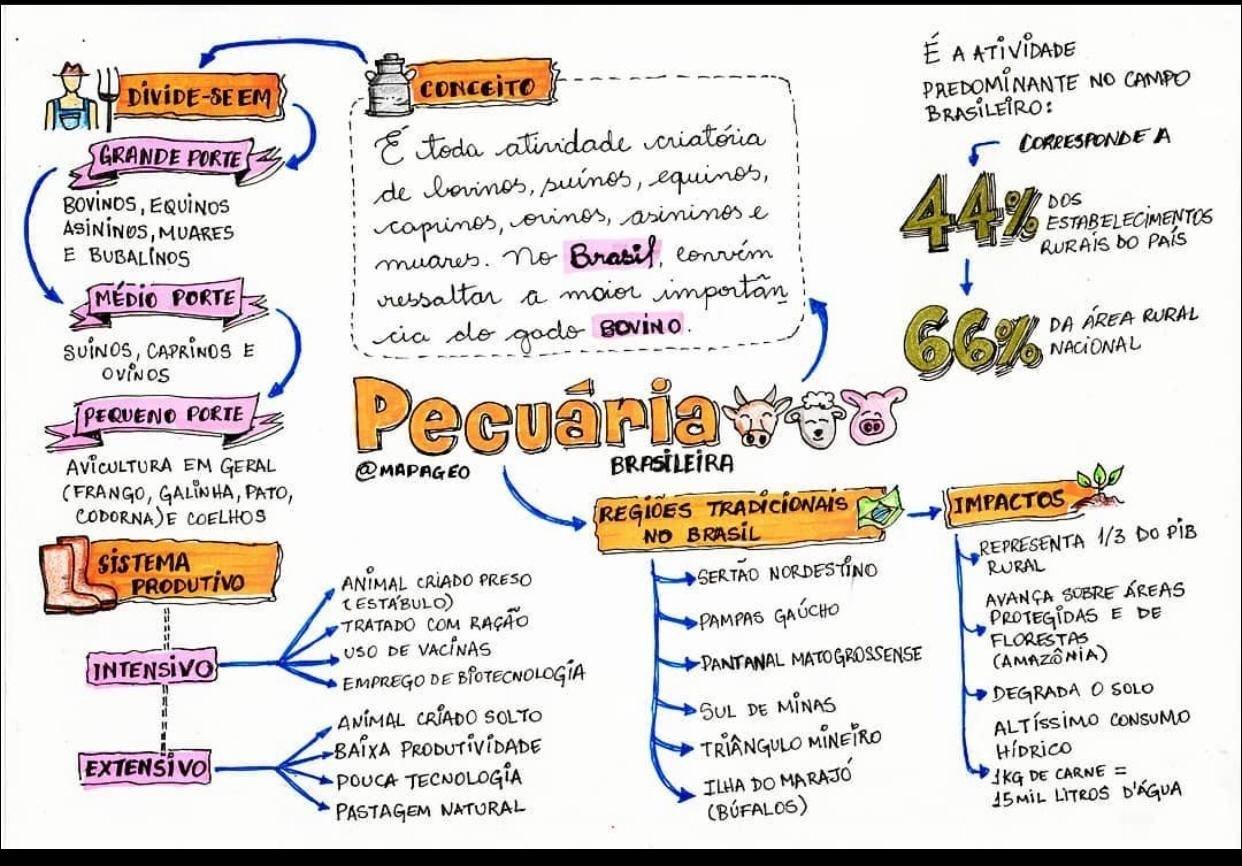 Pecuária
BRASILEIRA
@MAPAGEO
CONCEITO
É toda atividade criatória
de bovinos, suínos, equinos,
caprinos, ovinos, asininos e
muares. No Brasil, convém
ressaltar a maior importân
cia do gado BOVINO.
DIVIDE-SE EM
GRANDE PORTE
BOVINOS, EQUINOS
ASININOS, MUARES
E BUBALINOS
MÉDIO PORTE
SUÍNOS, CAPRINOS E
OVINOS
PEQUENO PORTE
AVICULTURA EM GERAL
(FRANGO, GALINHA, PATO,
CODORNA) E COELHOS
SISTEMA
PRODUTIVO
INTENSIVO
ANIMAL CRIADO PRESO
(ESTÁBULO)
TRATADO COM RAÇÃO
USO DE VACINAS
EMPREGO DE BIOTECNOLOGIA
EXTENSIVO
ANIMAL CRIADO SOLTO
BAIXA PRODUTIVIDADE
POUCA TECNOLOGIA
PASTAGEM NATURAL
É A ATIVIDADE
PREDOMINANTE NO CAMPO
BRASILEIRO:
CORRESPONDE A
44% DOS
ESTABELECIMENTOS
RURAIS DO PAÍS
66% DA ÁREA RURAL
NACIONAL
REGIÕES TRADICIONAIS
NO BRASIL
SERTÃO NORDESTINO
PAMPAS GAÚCHO
PANTANAL MATOGROSSENSE
SUL DE MINAS
TRIÂNGULO MINEIRO
ILHA DO MARAJÓ
(BÚFALOS)
IMPACTOS
REPRESENTA 1/3 DO PIB
RURAL
AVANÇA SOBRE ÁREAS
PROTEGIDAS E DE
FLORESTAS
(AMAZÔNIA)
DEGRADA O SOLO
ALTÍSSIMO CONSUMO
HÍDRICO
1KG DE CARNE =
15 MIL LITROS D'ÁGUA